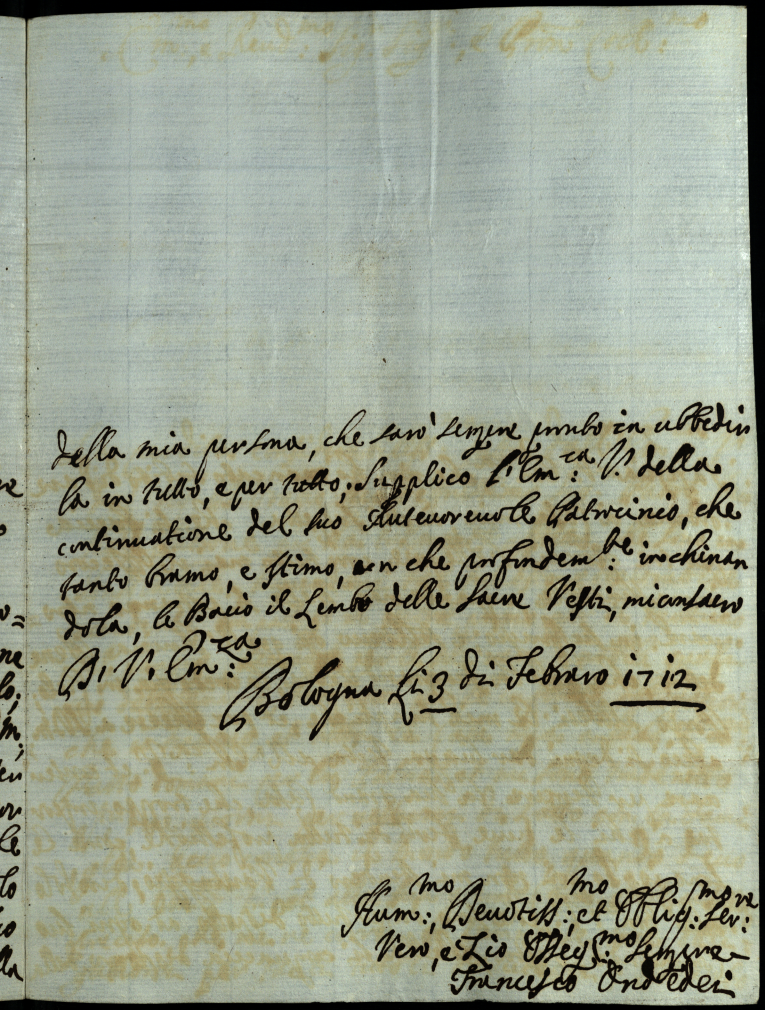 della mia persona, che sarò sempre pronto in ubbedir
la in tutto, e per tutto; Supplico l'Em:ca V. della
continuatione del suo Auteuoreuole Patrocinio, che
tanto bramo, e stimo, con che profondem:te inchinan
dola, le Bacio il Lembo delle Sacre Vesti, mi consacro
Di V. Em:za
Bologna Li 3 di Febraro 1712
Hum:mo, Deuotiss:mo et Oblig:mo Ser:re
Vero, e Zio Osseq:mo Sempre
Francesco Ondedei